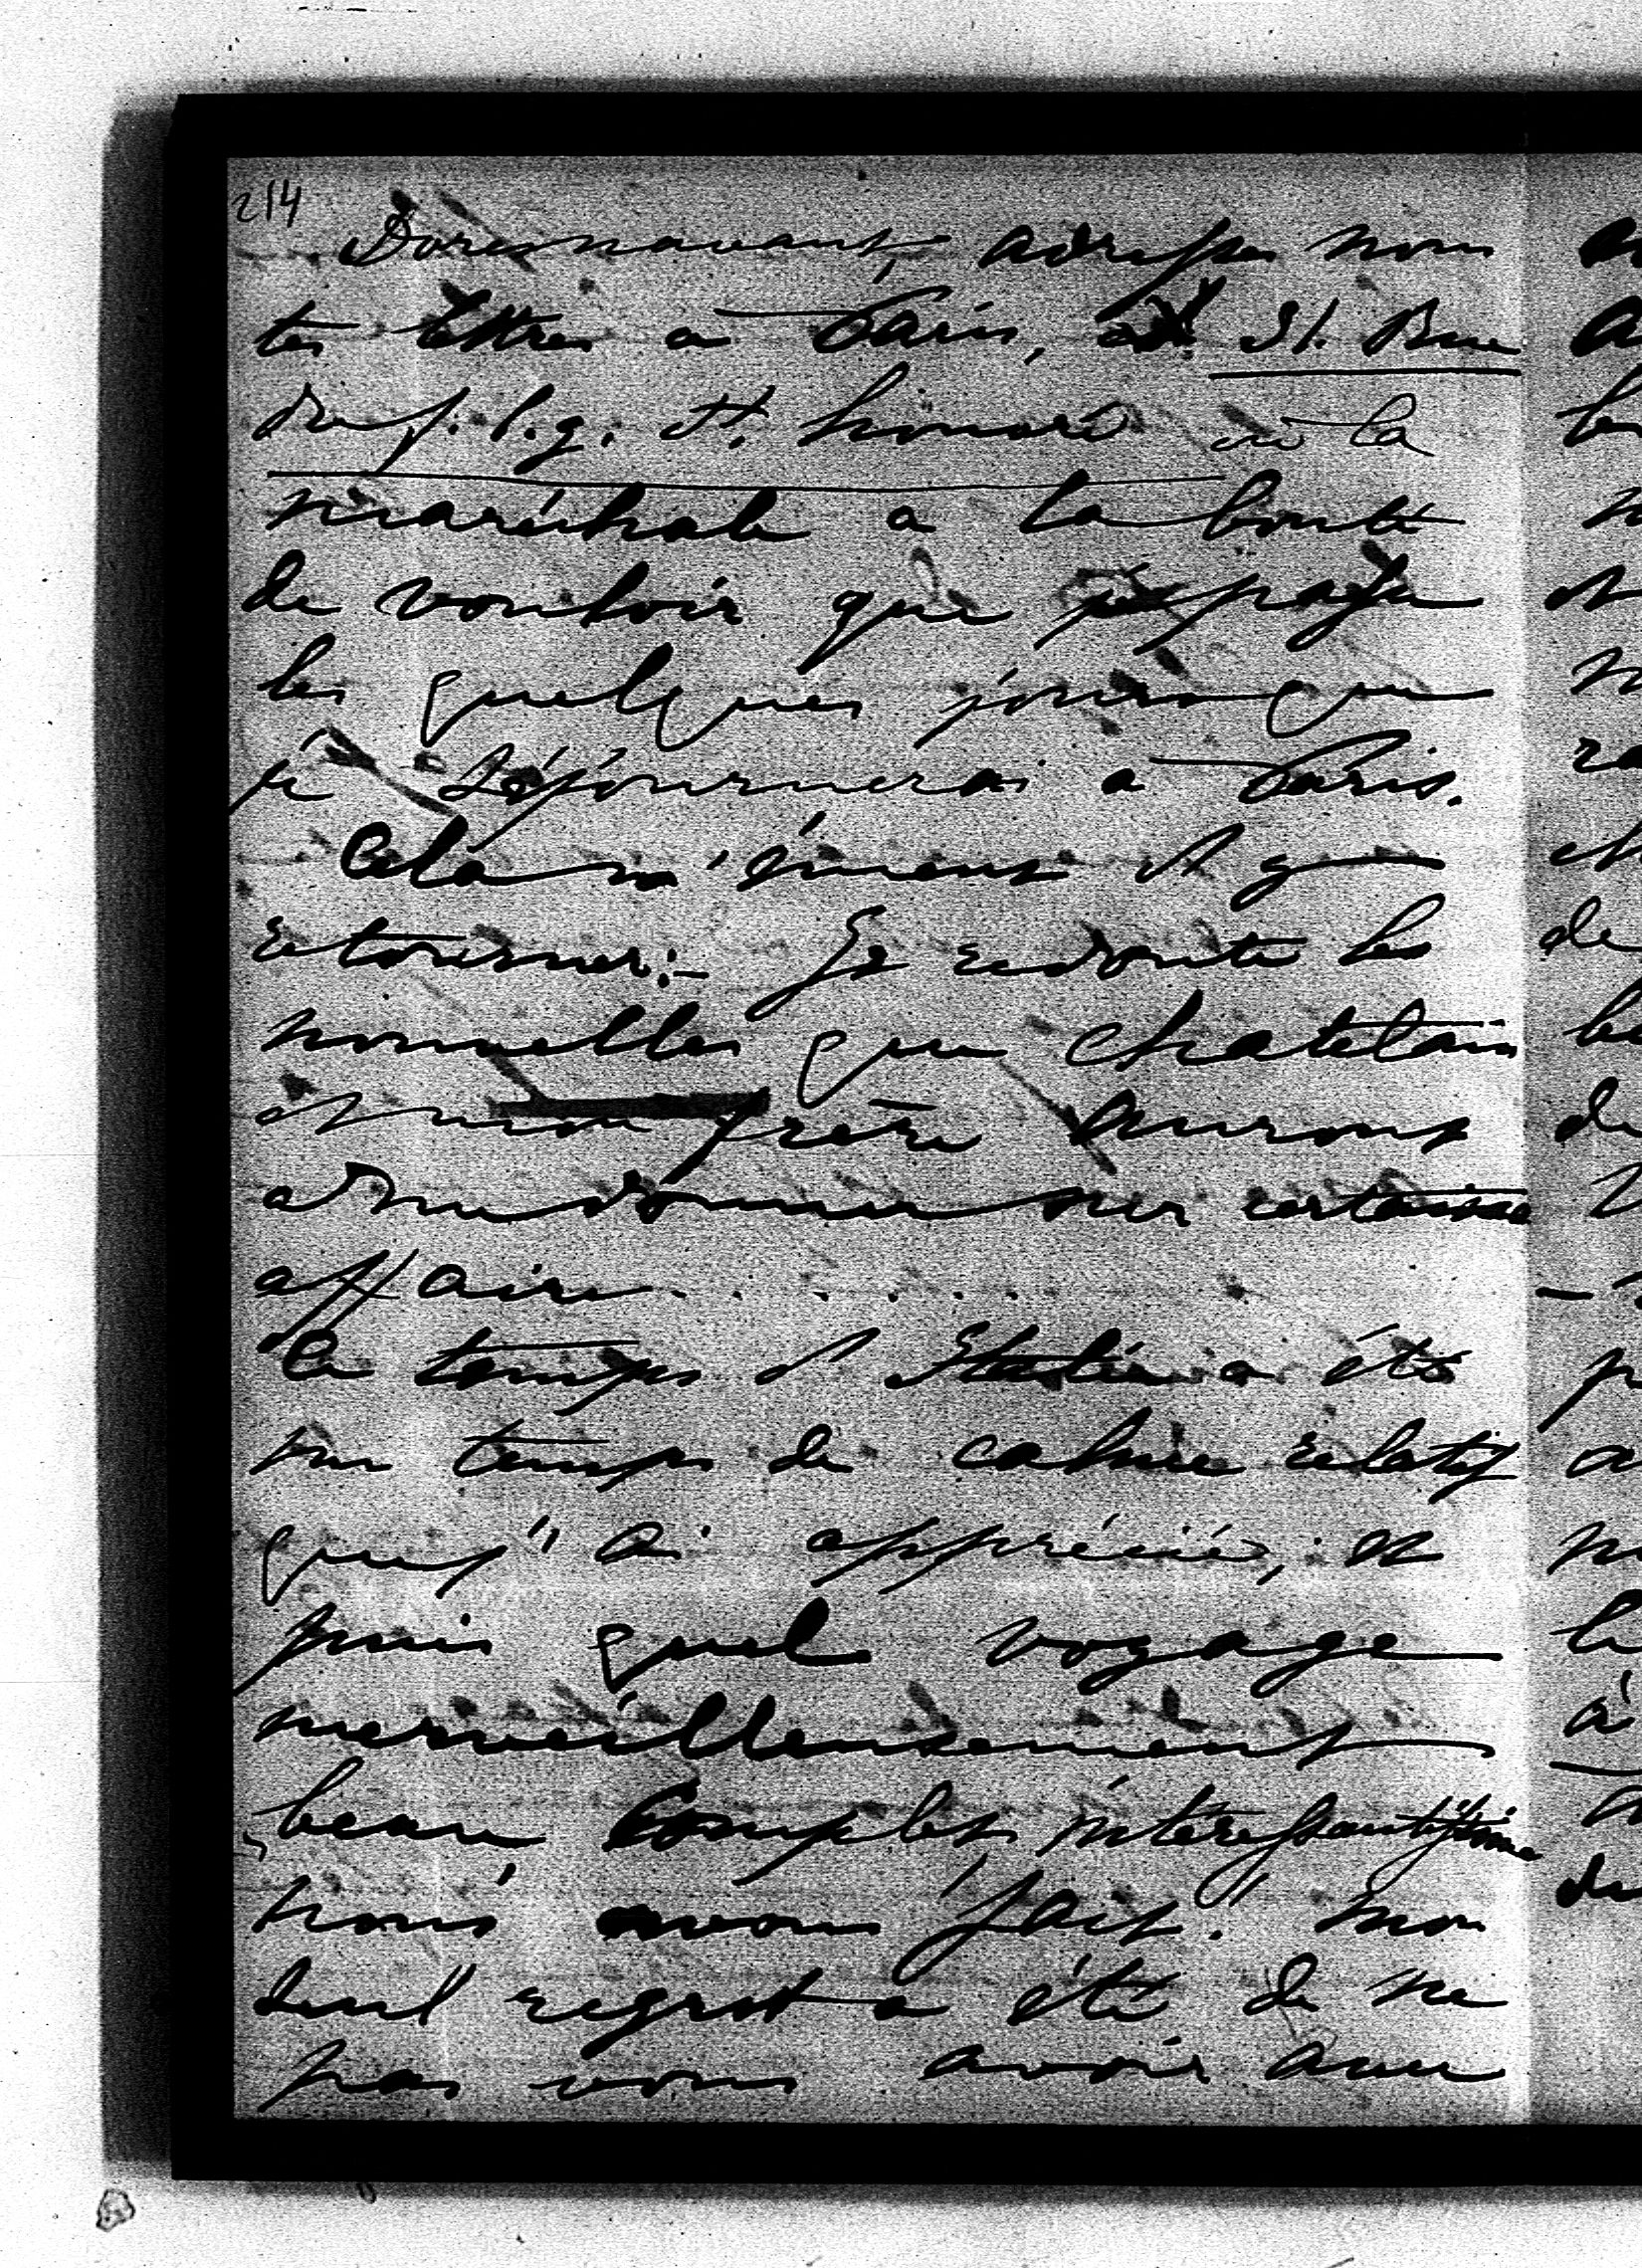 214
Doresnavant, adresse nous
tes lettres à Paris, 31. Rue
du f. b. g. St. honoré où la
maréchale a la bonté
de vouloir que je passe
les quelques jours que
je séjournerai à Paris.
Cela m'émeut d'y
retourner:- Je redoute les
nouvelles que Chatelain
et mon frère auront
à me donner sur certaine
affaire . . . . . .
Le temps d'Italie a été
un temps de calme relatif
que j'ai apprécié, et
puis quel voyage
merveilleusement
beau complet, intéressantissime
nous avons fait! mon
seul regret a été de ne
pas vous avoir avec